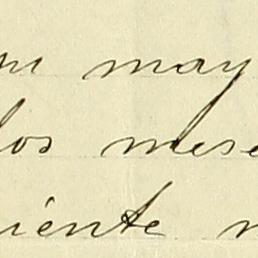 may
los mese
iente